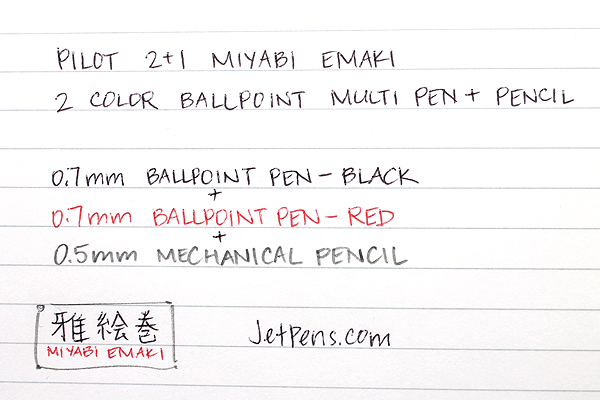 PILOT 2+1 MIYABI EMAKI
2 COLOR BALLPOINT MULTI PEN + PENCIL
0.7mm BALLPOINT PEN - BLACK
+
0.7mm BALLPOINT PEN - RED
+
0.5mm MECHANICAL PENCIL
雅絵巻
MIYABI EMAKI
JetPens.com